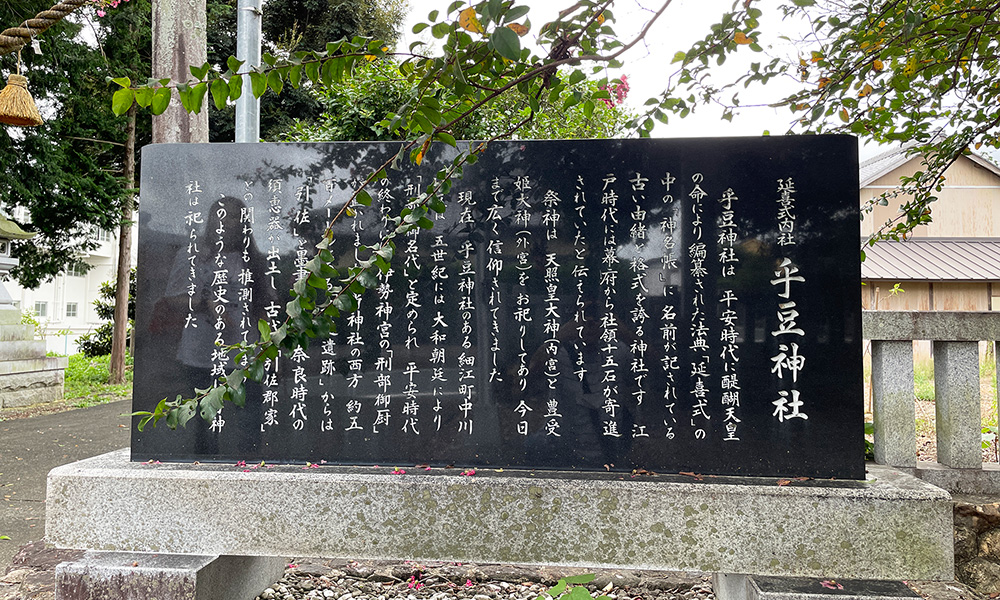 延喜式内社 乎豆神社
乎豆神社は 平安時代に醍醐天皇
の命により編纂された法典「延喜式」の
中の「神名帳」に 名前が記されている
古い由緒と格式を誇る神社です 江
戸時代には幕府から社領十二石が寄進
されていたと伝えられています
祭神は 天照皇大神(内宮)と 豊受
姫大神(外宮)をお祀りしてあり 今日
まで広く信仰されてきました
現在 乎豆神社のある細江町中川
は 五世紀には大和朝廷により
「刑部御名代」と定められ 平安時代
の終わりに 伊勢神宮の「刑部御厨」
かれまし 神社の西方 約五
百メー 遺跡」からは
「引佐」 墨書 奈良時代の
須恵器が出土し 古代 引佐郡家」
との関わりも推測されてい
このような歴史のある地域 神
社は 祀られてきました